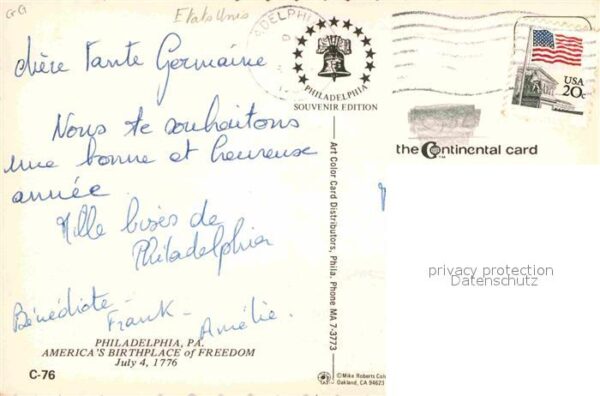 GG
Etats Unis
chère Tante Germaine
Nous te souhaitons
une bonne et heureuse
année
Mille bises de
Philadelphia
Bénédicte - Frank - Amélie.
PHILADELPHIA, PA.
AMERICA'S BIRTHPLACE of FREEDOM
July 4, 1776
C-76
PHILADELPHIA
SOUVENIR EDITION
USA
20c
the Continental card
Art Color Card Distributors, Phila. Phone MA 7-3773
privacy protection
Datenschutz
©Mike Roberts Color
Oakland, CA 94623